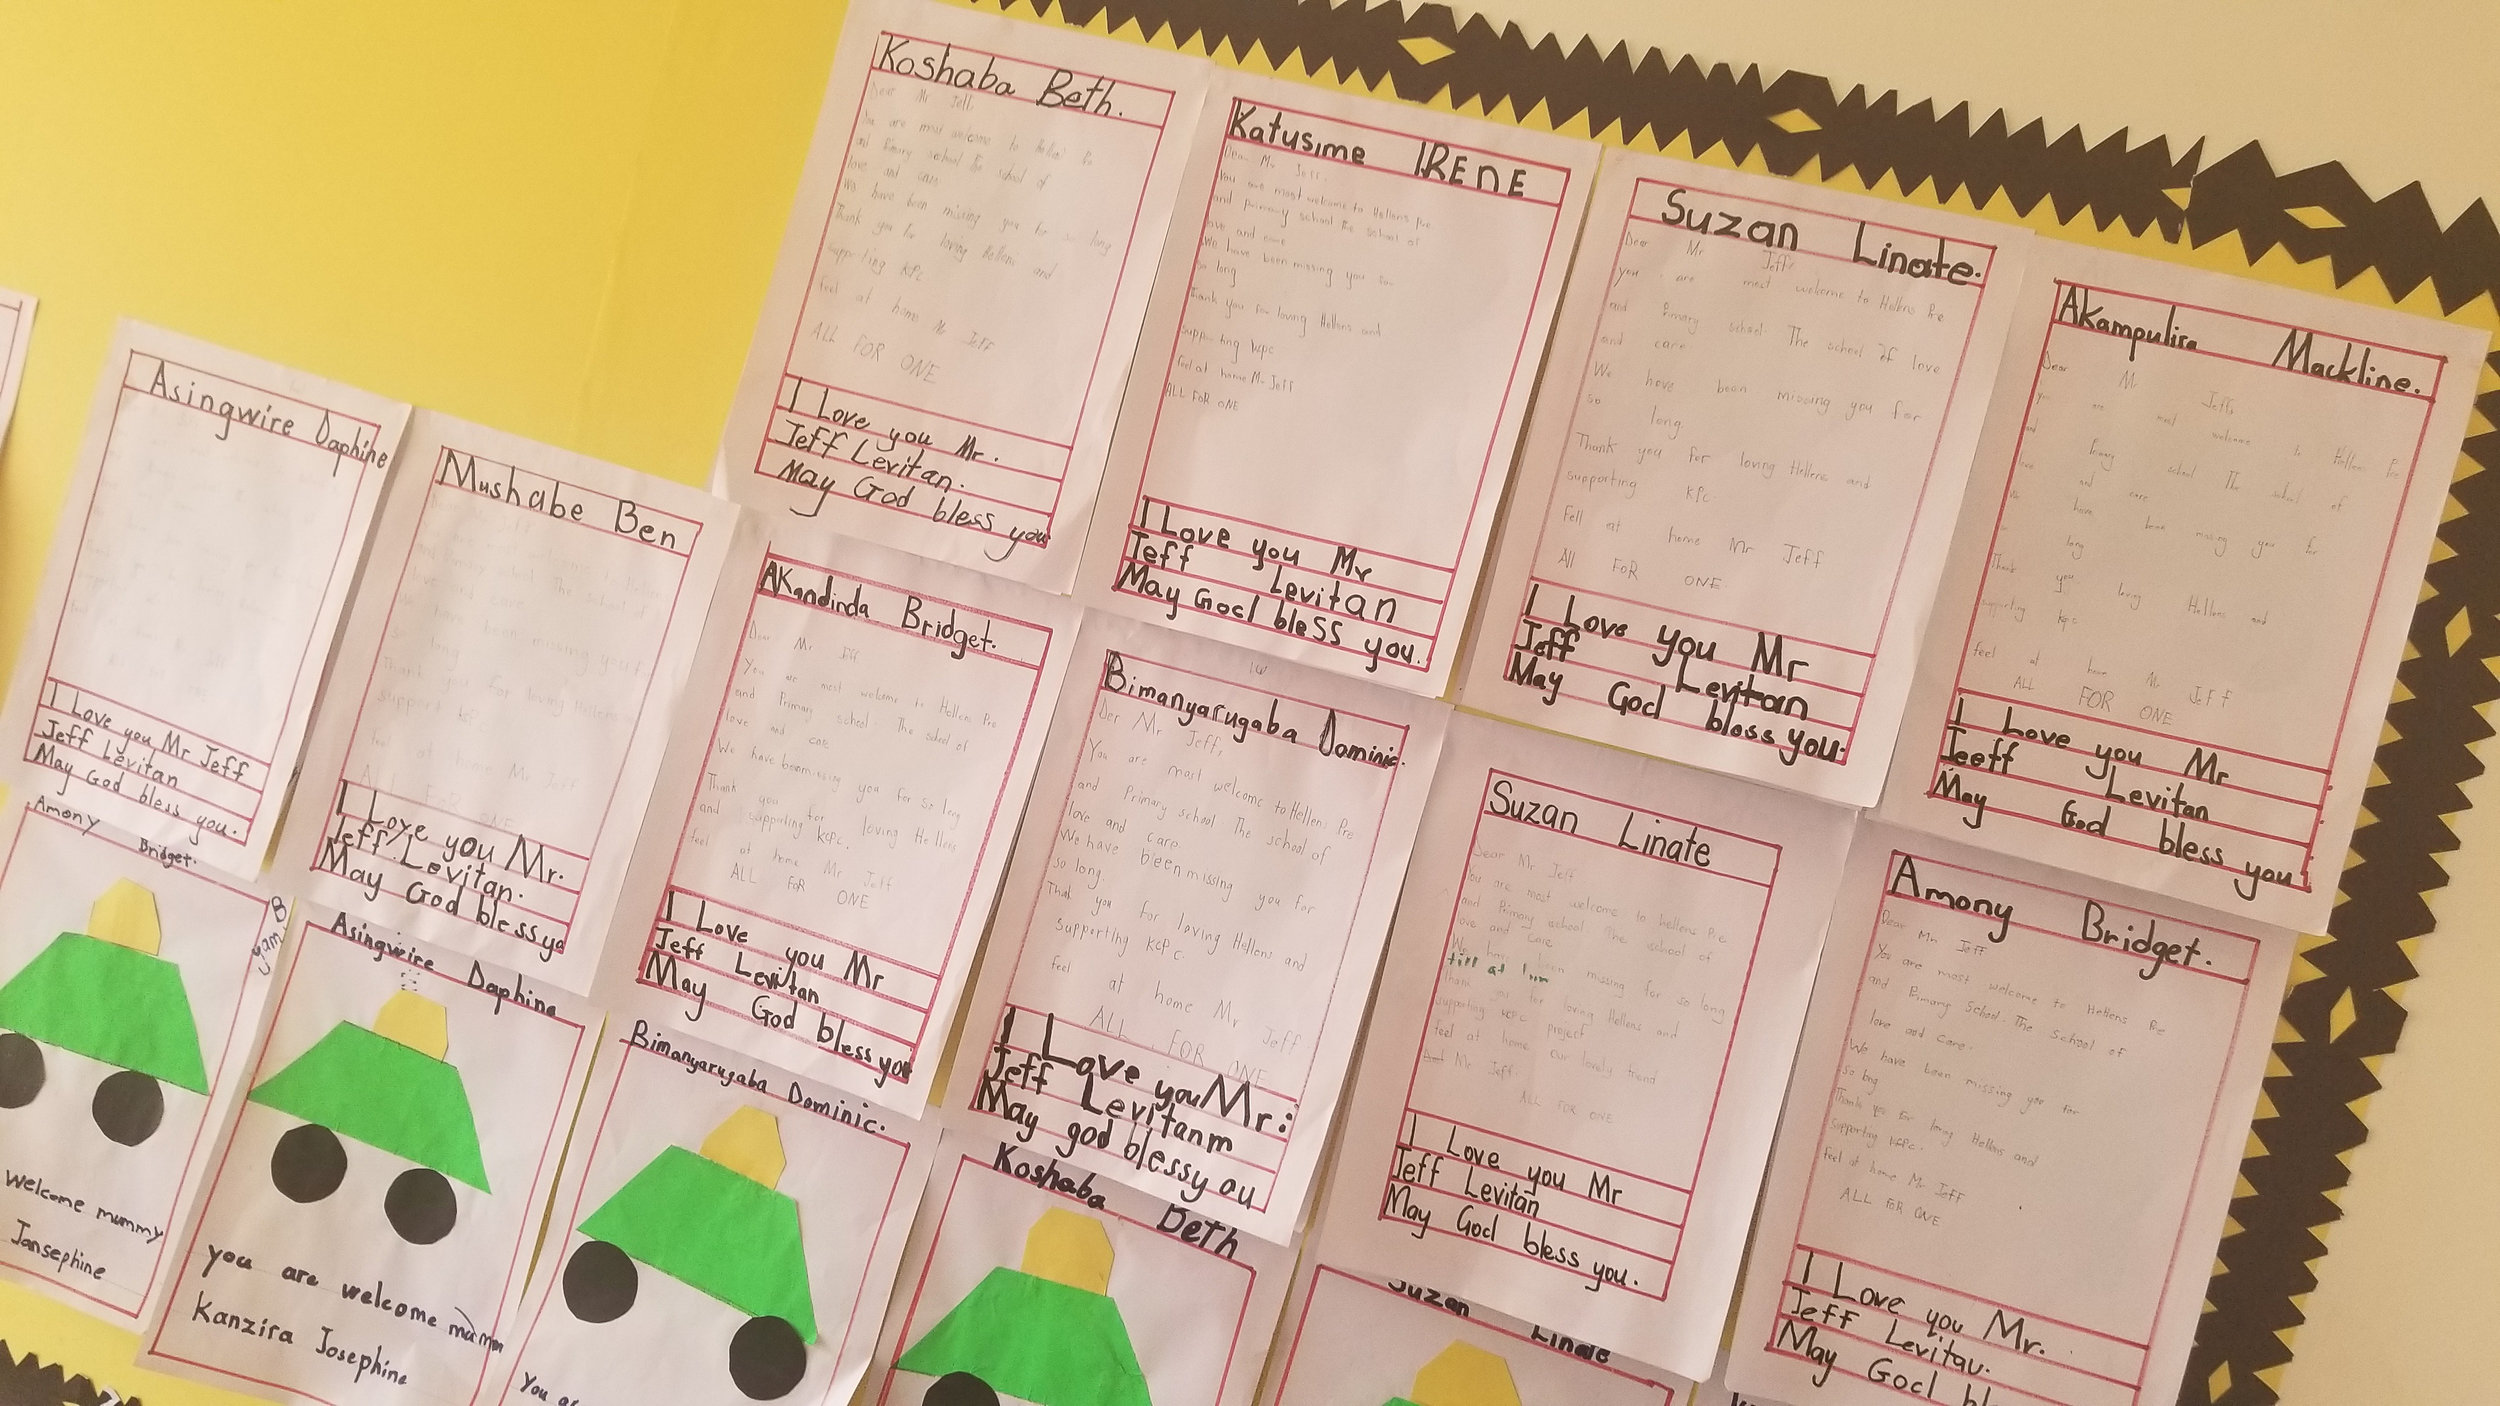 Koshaba Beth.
Dear Mr Jeff,
You are most welcome to Hellens Pre
and Primary school The school of
love and care
We have been missing you for so long
Thank you for loving Hellens and
supporting KPC
feel at home Mr Jeff
ALL FOR ONE
I Love you Mr.
Jeff Levitan.
May God bless you
Katusime IRENE
Dear Mr Jeff.
You are most welcome to Hellens Pre
and Primary school The school of
love and care
We have been missing you so
so long
Thank you for loving Hellens and
supporting KPC
Feel at home Mr Jeff
ALL FOR ONE
I Love you Mr
Jeff Levitan
May God bless you.
Suzan Linate.
Dear Mr Jeff,
you are most welcome to Hellens Pre
and Primary school The school of love
and care.
We have been missing you for
so long.
Thank you for loving Hellens and
supporting KPC
Fell at home Mr Jeff
All FOR ONE
I Love you Mr
Jeff Levitan
May God bless you.
Akampulira Mackline.
Dear Mr Jeff,
you are most welcome to Hellens Pre
and Primary school The school of
love and care
We have been missing you for
so long
Thank you loving Hellens and
supporting KPC
feel at home Mr Jeff
ALL FOR ONE
I Love you Mr
Jeeff Levitan
May God bless you
Asingwire Daphine
I Love you Mr Jeff
Jeff Levitan
May God bless you.
Mushabe Ben
love and care
We have been missing you f
so long
Thank you for loving Hellens
support
feel at home Mr Jeff
ALL FOR ONE
I Love you Mr.
Jeff Levitan.
May God bless yo
Akandinda Bridget.
Dear Mr Jeff
You are most welcome to Hellens Pre
and Primary school. The school of
love and care
We have beemissing you for so long
Thank you for loving Hellens
and supporting KCPC.
feel at home Mr Jeff
ALL FOR ONE
I Love you Mr
Jeff Levitan
May God bless you
Bimanyarugaba Dominic.
Der Mr Jeff,
You are most welcome to Hellens Pre
and Primary school The school of
love and care.
We have been missing you for
so long.
That you for loving Hellens and
supporting KCPC.
feel at home Mr Jeff.
ALL FOR ONE
I Love you Mr:
Jeff Levitanm
May god blessy ou
Suzan Linate
Dear Mr Jeff
You are most welcome to hellens Pre
and Primary school The school of
love and care
We have been missing for so long
thank you for loving Hellens and
supporting KCPC project
feel at home our lovely friend
Mr Jeff.
ALL FOR ONE
I Love you Mr
Jeff Levitan
May God bless you.
Amony Bridget.
Dear Mr Jeff
You are most welcome to Hellens Pre
and Primary School. The School of
love and care.
We have been missing you for
so long
Thank yo for loving Hellens and
supporting KCPC.
feel at home Mr Jeff
ALL FOR ONE
I Love you Mr.
Jeff Levitau.
May God bl
Amony Bridget.
welcome mummy
Jansephine
Asingwire Daphine
you are welcome mamm
Kanzira Josephine
Bimanyarugaba Dominic.
You a
Koshaba Beth
Suzan Linate